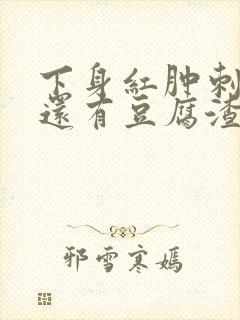 下身红肿刺
还有豆腐渣
邪雪寒嫣